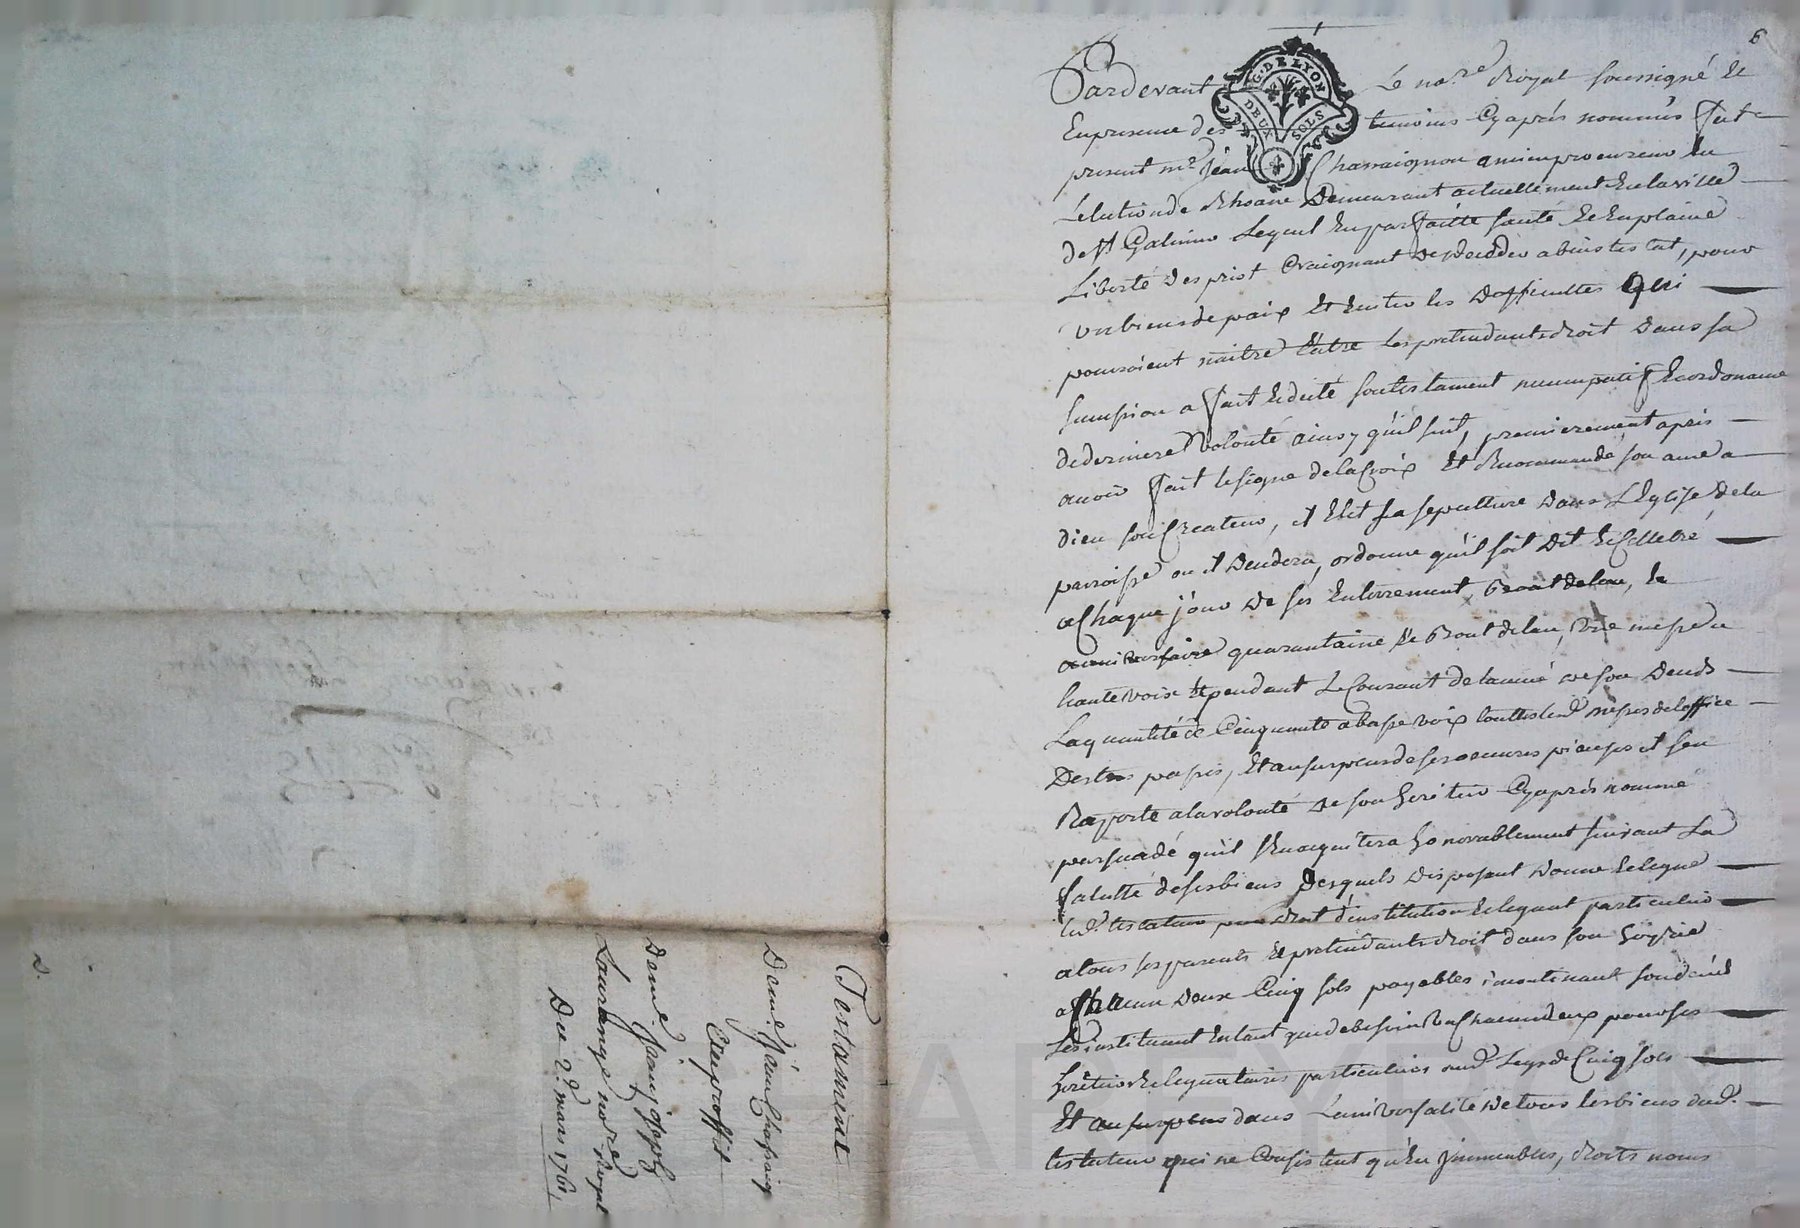 6
G. DE LYON
DEUX SOLS
Pardevant Le no.re Royal soussigné et
En presence des temoins Cyaprés nommés fut
present m.r Jean Chassaignon antien procureur En
Lelection de Rhoane Demeurant actuellement En la ville
de st Galmier Lequel En parfaitte santé Et En plaine
Liberté desprist Craignant de deceder abintestat, pour
un biens de paix Et Eviter les Dofficultes Qui
pourroient naitre Entre Les pretendants droit dans sa
sucession a fait Et dicté son testament nuncupatif Et ordonance
de derniere volonté ainsy qu'il suit, premierement apres
avoir fait le signe de la Croix Et Recommandé son ame a
dieu son Createur, il Elit sa sepulture dans L'Eglise de la
parroisse ou il decedera, ordonne qu'il soit dit Et Cellebré
a Chaque jour de ses Enterrement, bout de lan, Et
anniversaire quarantaine de bout de lan, une messe a
haute voix Et pendant Le Courant de l'année de son deceds
La quantité de Cinquante a basse voix touttes lesd. messes de loffice
Des tres passés, Et au surpeus de ses oeuvres pieuses il s'en
Raporte a la volonté de son heritier Cyaprés nommé
persuadé qu'il s'En acquitera honorablement suivant La
faculté de ses biens Desquels disposant donne Et legue
led. testateur par droit d'institution Et leguat particulier
a tous ses parents Et pretendants droit dans son hoyrie
a Chacun deux Cinq sols payables incontinant son decés
Les instituant En tant que de besoin Chacun deux pour ses
heritiers Et leguataires particuliers aud. Legs de Cinq sols
Et au surpeus dans L'universalité de tous les biens dud.
testateur qui ne Consistent qu'En jmmeubles, droits noms
Testament
De m.e Jean Chassaig
Et au proffit
De m.e Jean joseph
Laurange no.re Royal
Du 2.e mars 1761.
CHAREYRON